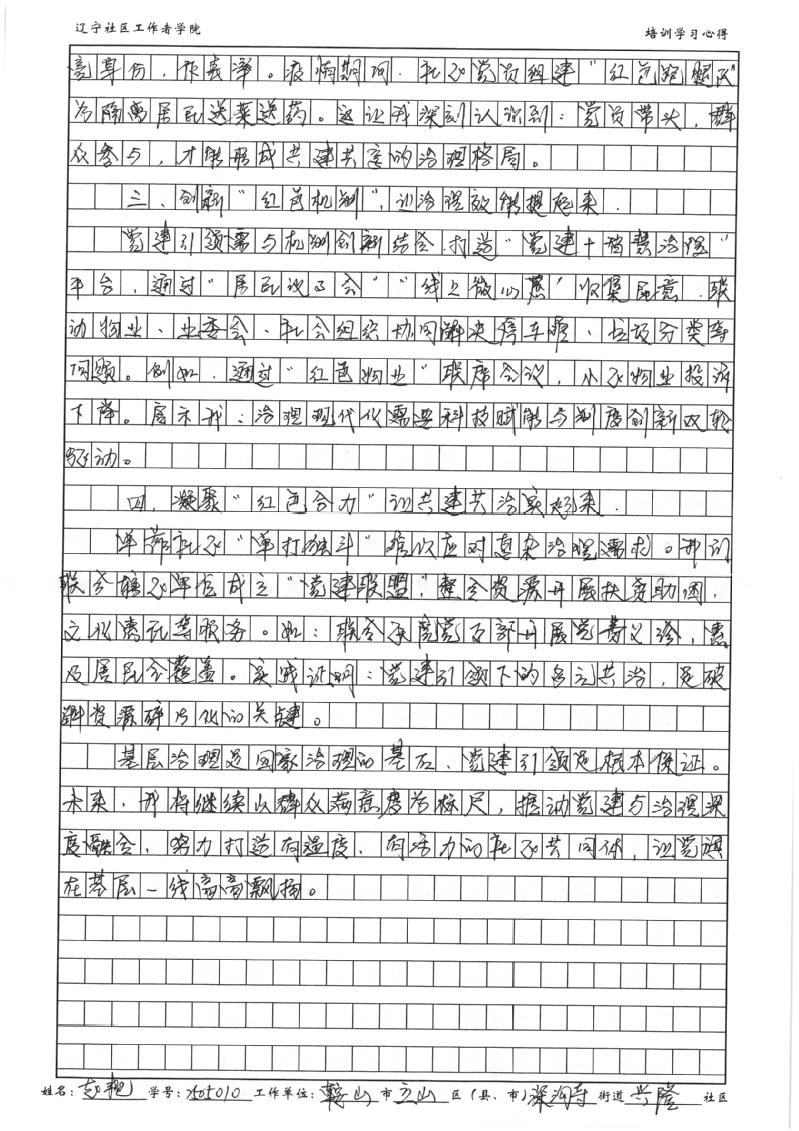 辽宁社区工作者学院 培训学习心得
亮身份,作表率。疫情期间,社区党员组建“红色跑腿队”
为隔离居民送菜送药。这让我深刻认识到:党员带头,群
众参与,才能形成共建共享的治理格局。
三、创新“红色机制”,让治理效能提起来.
党建引领需与机制创新结合.打造“党建+智慧治理”
平台,通过“居民议事会”“线上微心愿”收集民意,联
动物业、业委会、社会组织协同解决停车难、垃圾分类等
问题。例如,通过“红色物业”联席会议,小区物业投诉
下降。启示我:治理现代化需要科技赋能与制度创新双轮
驱动。
四、凝聚“红色合力”让共建共治实起来.
单靠社区“单打独斗”难以应对复杂治理需求。我们
联合辖区单位成立“党建联盟”,整合资源开展扶贫助困,
文化惠民等服务。如:联合 党支部开展 义诊,惠
及居民全覆盖。实践证明:党建引领下的多元共治,是破
解资源碎片化的关键。
基层治理是国家治理的基石、党建引领是根本保证。
未来,我将继续以群众满意度为标尺,推动党建与治理深
度融合,努力打造有温度、有活力的社区共同体,让党旗
在基层一线高高飘扬。
姓名:赵艳 学号:2505010 工作单位:鞍山市立山区(县、市)深沟寺街道兴隆社区